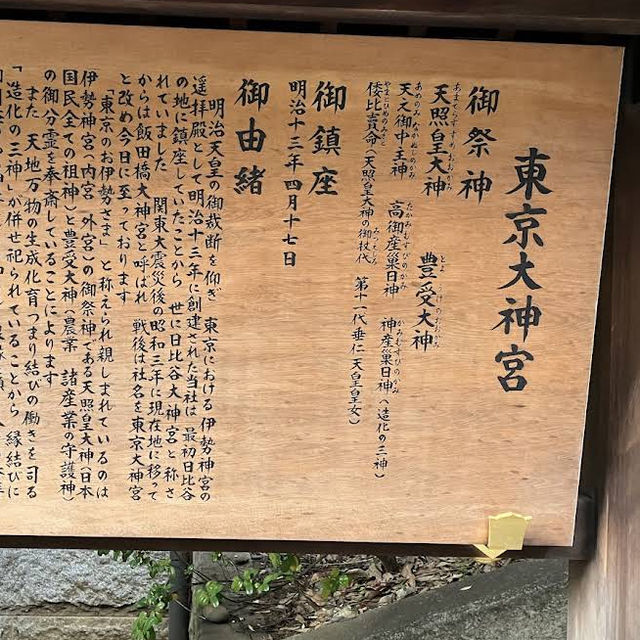 東京大神宮
御祭神
天照皇大神 豊受大神
天之御中主神 高御産巣日神 神産巣日神(造化の三神)
倭比賣命(天照皇大神の御杖代 第十一代垂仁天皇皇女)
御鎮座
明治十三年四月十七日
御由緒
明治天皇の御裁断を仰ぎ 東京における伊勢神宮の
遥拝殿として明治十三年に創建された当社は 最初日比谷
の地に鎮座していたことから 世に日比谷大神宮と称さ
れていました 関東大震災後の昭和三年に現在地に移って
からは飯田橋大神宮と呼ばれ 戦後は社名を東京大神宮
と改め今日に至っております
「東京のお伊勢さま」と称えられ親しまれているのは
伊勢神宮(内宮・外宮)の御祭神である天照皇大神(日本
国民全ての祖神)と豊受大神(農業 諸産業の守護神)
の御分霊を奉斎していることによります
また 天地万物の生成化育つまり結びの働きを司る
「造化の三神」が併せ祀られていることから 縁結びに